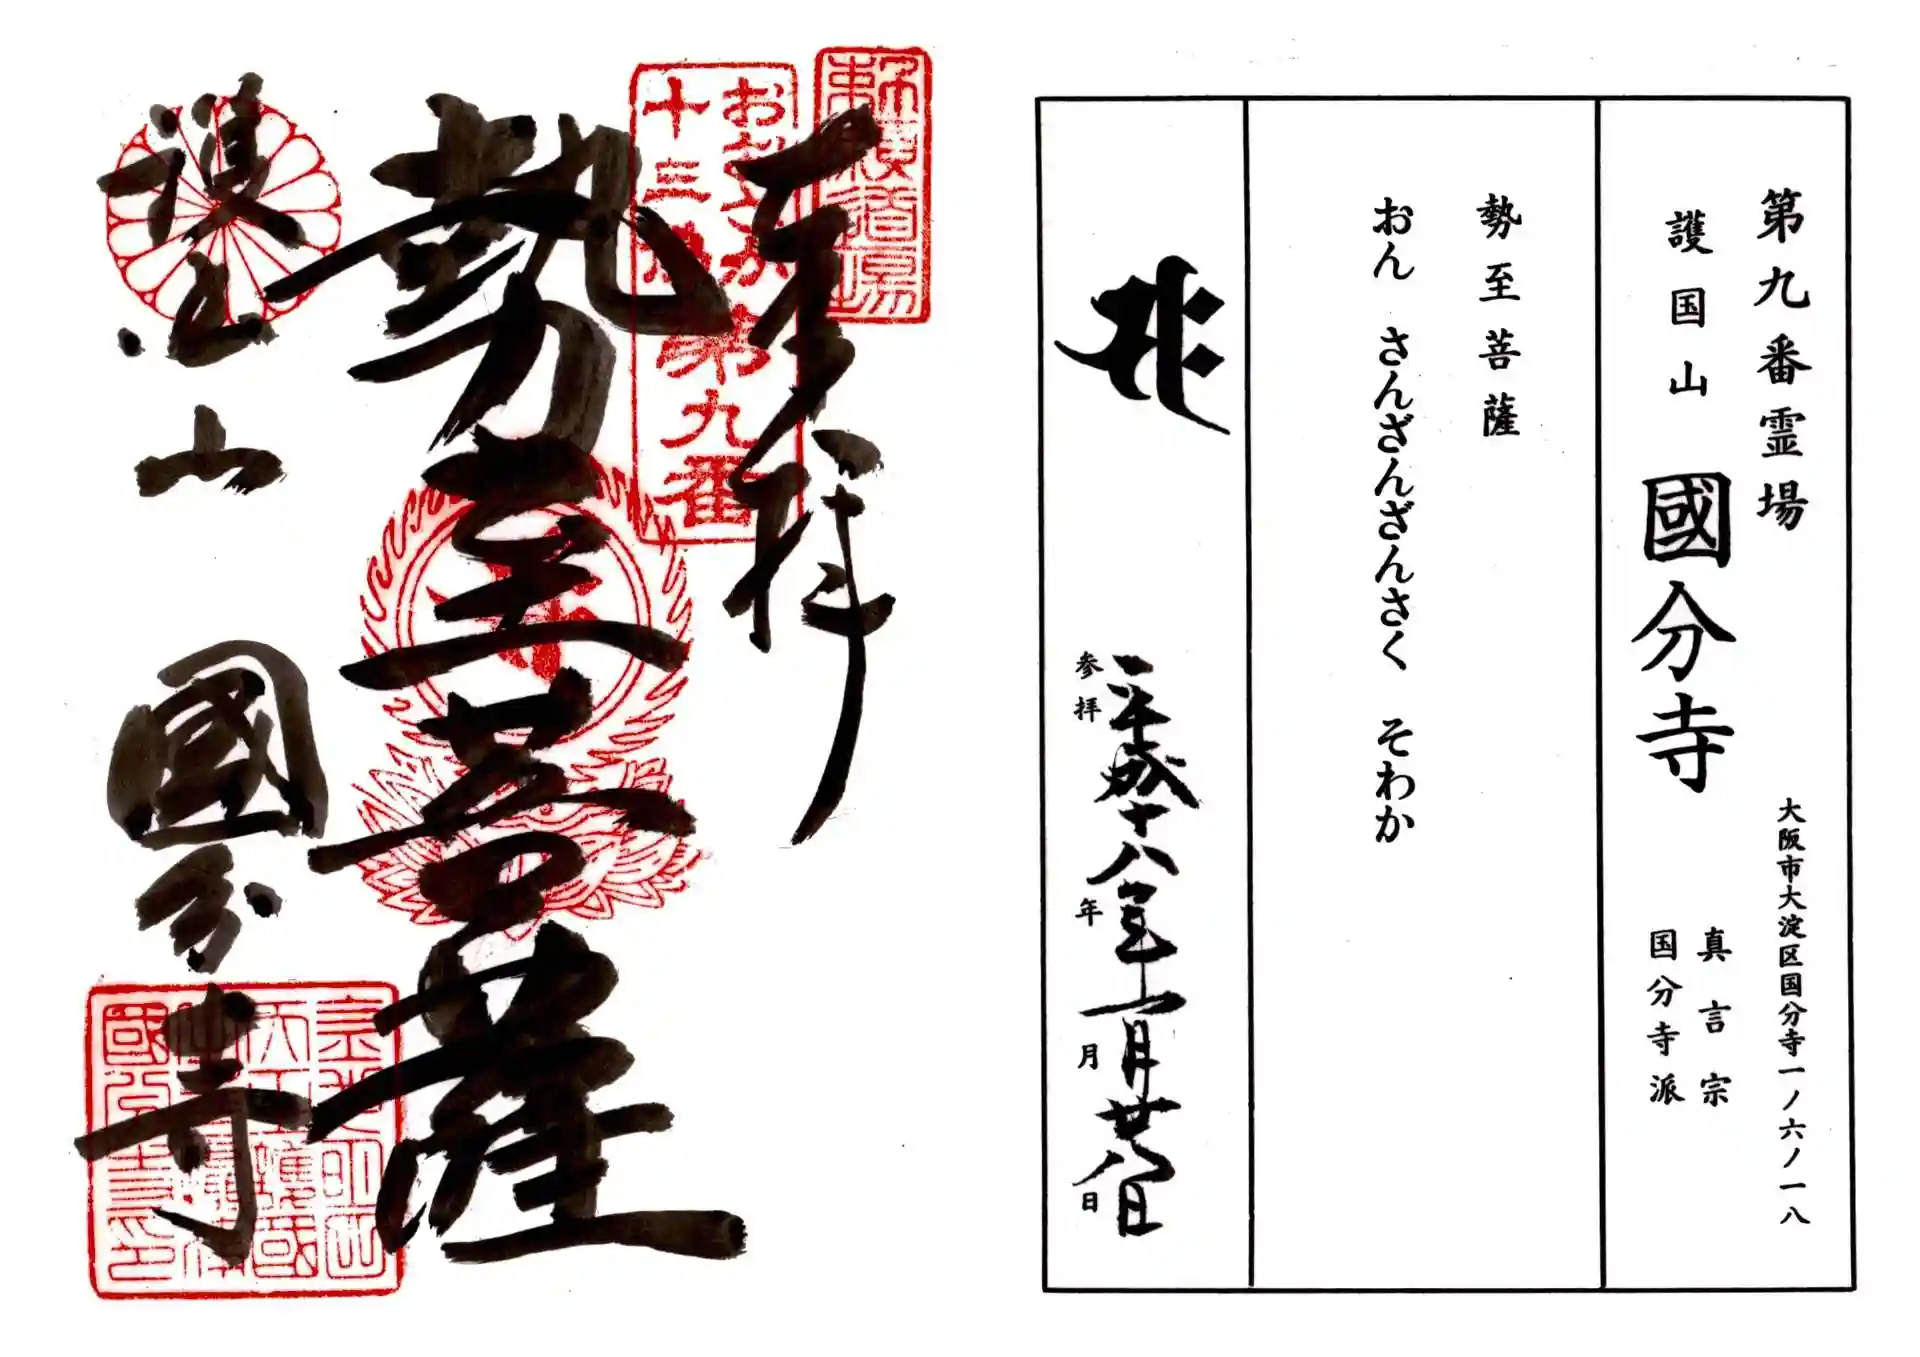 第九番霊場
護国山 國分寺
大阪市大淀区国分寺一ノ六ノ一八
真言宗
国分寺派
勢至菩薩
おん さんざんざんざんさく そわか
参拝 年 月 日
平成十八年一月廿八日
奉拝
おおさか
十三佛
第九番
勢至菩薩
護国山 國分寺